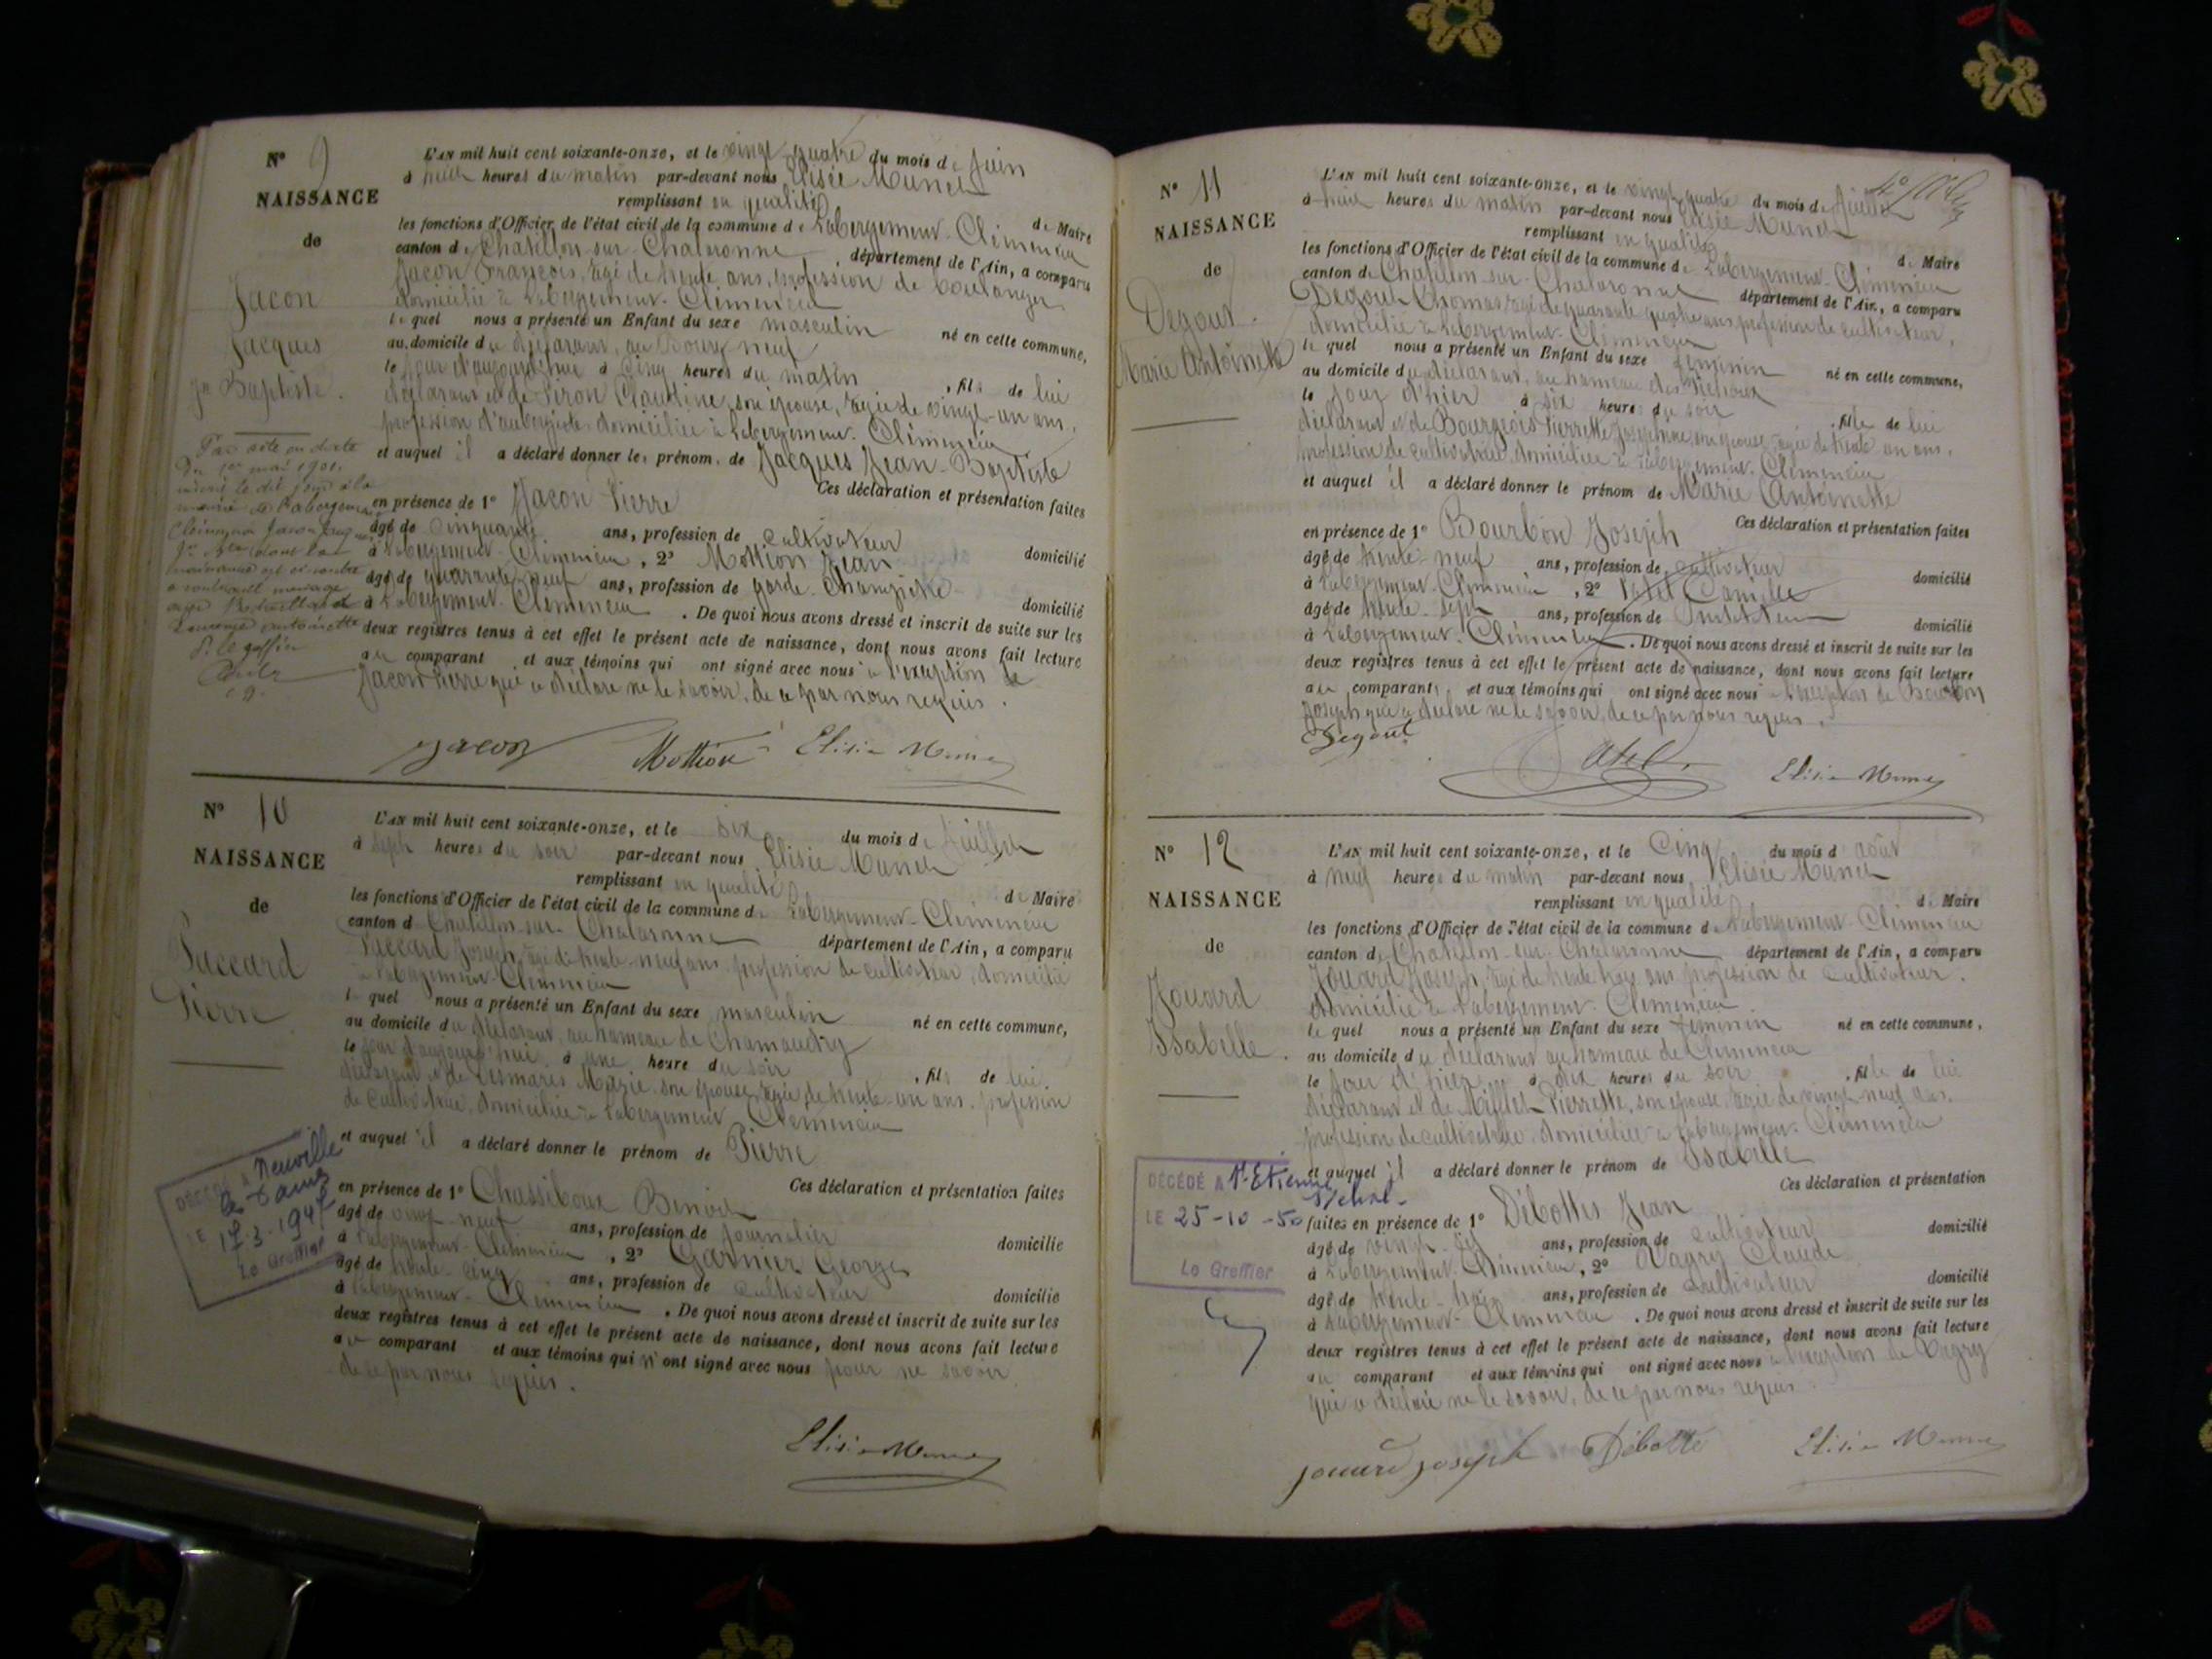 N° 9
NAISSANCE
de
Jacon
Jacques
Jn Baptiste.
L'AN mil huit cent soixante-onze, et le vingt-quatre du mois de Juin
à heures du matin par-devant nous Elisée Munet
remplissant en qualité de Maire
les fonctions d'Officier de l'état civil de la commune de Labergement-Clémencia
canton de Chatillon-sur-Chalaronne, département de l'Ain, a comparu
Jacon François, âgé de trente ans, profession de boulanger
domicilié à Labergement-Clémencia
lequel nous a présenté un Enfant du sexe masculin né en cette commune,
au domicile du déclarant, au Bourg neuf
le jour d'aujourd'hui à cinq heures du matin, fils de lui
déclarant et de Piron Claudine, son épouse, âgée de vingt-un ans,
profession d'aubergiste domiciliée à Labergement-Clémencia
et auquel il a déclaré donner les prénoms de Jacques Jean-Baptiste
Ces déclaration et présentation faites
en présence de 1° Jacon Pierre
âgé de cinquante ans, profession de cultivateur domicilié
à Labergement-Clémencia, 2° Mottion Jean
âgé de quarante-neuf ans, profession de garde-champêtre domicilié
à Labergement-Clémencia. De quoi nous avons dressé et inscrit de suite sur les
deux registres tenus à cet effet le présent acte de naissance, dont nous avons fait lecture
au comparant et aux témoins qui ont signé avec nous à l'exception de
Jacon Pierre qui a déclaré ne le savoir, de ce par nous requis.
Par acte en date
du 1er mai 1901,
mairie de Labergement
Clémencia Jacon Jacques
a contracté mariage
avec
Antoinette
Jacon Mottion Elisée Munet
N° 10
NAISSANCE
de
Paccard
Pierre
L'AN mil huit cent soixante-onze, et le six du mois de Juillet
à sept heures du soir par-devant nous Elisée Munet
remplissant en qualité de Maire
les fonctions d'Officier de l'état civil de la commune de Labergement-Clémencia
canton de Chatillon-sur-Chalaronne département de l'Ain, a comparu
Paccard Joseph, âgé de trente-neuf ans, profession de cultivateur, domicilié
à Labergement-Clémencia
lequel nous a présenté un Enfant du sexe masculin né en cette commune,
au domicile du déclarant, au hameau de Chamandry
le jour d'aujourd'hui à une heure du soir, fils de lui
déclarant et de Desmaris Marie son épouse, âgée de trente-un ans, profession
de cultivatrice, domiciliée à Labergement Clémencia
et auquel il a déclaré donner le prénom de Pierre
DÉCÉDÉ à Neuville
les Dames
LE 19.3.194
Le Greffier
Ces déclaration et présentation faites
en présence de 1° Chassiboux Benoit
âgé de vingt-neuf ans, profession de journalier domicilié
à Labergement-Clémencia, 2° Garnier George
âgé de trente-cinq ans, profession de cultivateur domicilié
à Labergement-Clémencia. De quoi nous avons dressé et inscrit de suite sur les
deux registres tenus à cet effet le présent acte de naissance, dont nous avons fait lecture
au comparant et aux témoins qui n'ont signé avec nous pour ne savoir
de ce par nous requis.
Elisée Munet
N° 11
NAISSANCE
de
Degout.
Marie Antoinette
L'AN mil huit cent soixante-onze, et le vingt-quatre du mois de Juillet
à huit heures du matin par-devant nous Elisée Munet
remplissant en qualité de Maire
les fonctions d'Officier de l'état civil de la commune de Labergement-Clémencia
canton de Chatillon-sur-Chalaronne département de l'Ain, a comparu
Degout Thomas âgé de quarante quatre ans profession de cultivateur,
domicilié à Labergement-Clémencia
lequel nous a présenté un Enfant du sexe féminin né en cette commune,
au domicile du déclarant, au hameau des
le jour d'hier à six heures du soir, fille de lui
déclarant et de Bourgeois Pierrette Joséphine, son épouse, âgée de trente un ans,
profession de cultivatrice domiciliée à Labergement-Clémencia
et auquel il a déclaré donner le prénom de Marie Antoinette
Ces déclaration et présentation faites
en présence de 1° Bourbon Joseph
âgé de trente-neuf ans, profession de cultivateur domicilié
à Labergement-Clémencia, 2° Patel Camille
âgé de trente-sept ans, profession de Instituteur domicilié
à Labergement-Clémencia. De quoi nous avons dressé et inscrit de suite sur les
deux registres tenus à cet effet le présent acte de naissance, dont nous avons fait lecture
au comparant, et aux témoins qui ont signé avec nous à l'exception de Bourbon
Joseph qui a déclaré ne le savoir, de ce par nous requis.
Degout Patel Elisée Munet
N° 12
NAISSANCE
de
Jouard
Isabelle.
L'AN mil huit cent soixante-onze, et le Cinq du mois d'août
à neuf heures du matin par-devant nous Elisée Munet
remplissant en qualité de Maire
les fonctions d'Officier de l'état civil de la commune de Labergement-Clémencia
canton de Chatillon-sur-Chalaronne département de l'Ain, a comparu
Jouard Joseph, âgé de trente trois ans profession de cultivateur.
domicilié à Labergement-Clémencia
lequel nous a présenté un Enfant du sexe féminin né en cette commune,
au domicile du déclarant au hameau de Clémencia
le jour d'hier à dix heures du soir, fille de lui
déclarant et de Millet Pierrette, son épouse, âgée de vingt-neuf ans,
profession de cultivatrice, domiciliée à Labergement-Clémencia
et auquel il a déclaré donner le prénom de Isabelle
DÉCÉDÉ A St Etienne
s/ chal.
LE 25-10-50
Le Greffier
Ces déclaration et présentation
faites en présence de 1° Débottes Jean
âgé de vingt- ans, profession de cultivateur domicilié
à Labergement-Clémencia, 2° Vagry Claude
âgé de trente-trois ans, profession de cultivateur domicilié
à Labergement-Clémencia. De quoi nous avons dressé et inscrit de suite sur les
deux registres tenus à cet effet le présent acte de naissance, dont nous avons fait lecture
au comparant et aux témoins qui ont signé avec nous à l'exception de Vagry
qui a déclaré ne le savoir, de ce par nous requis.
Jouard Joseph Débotte Elisée Munet